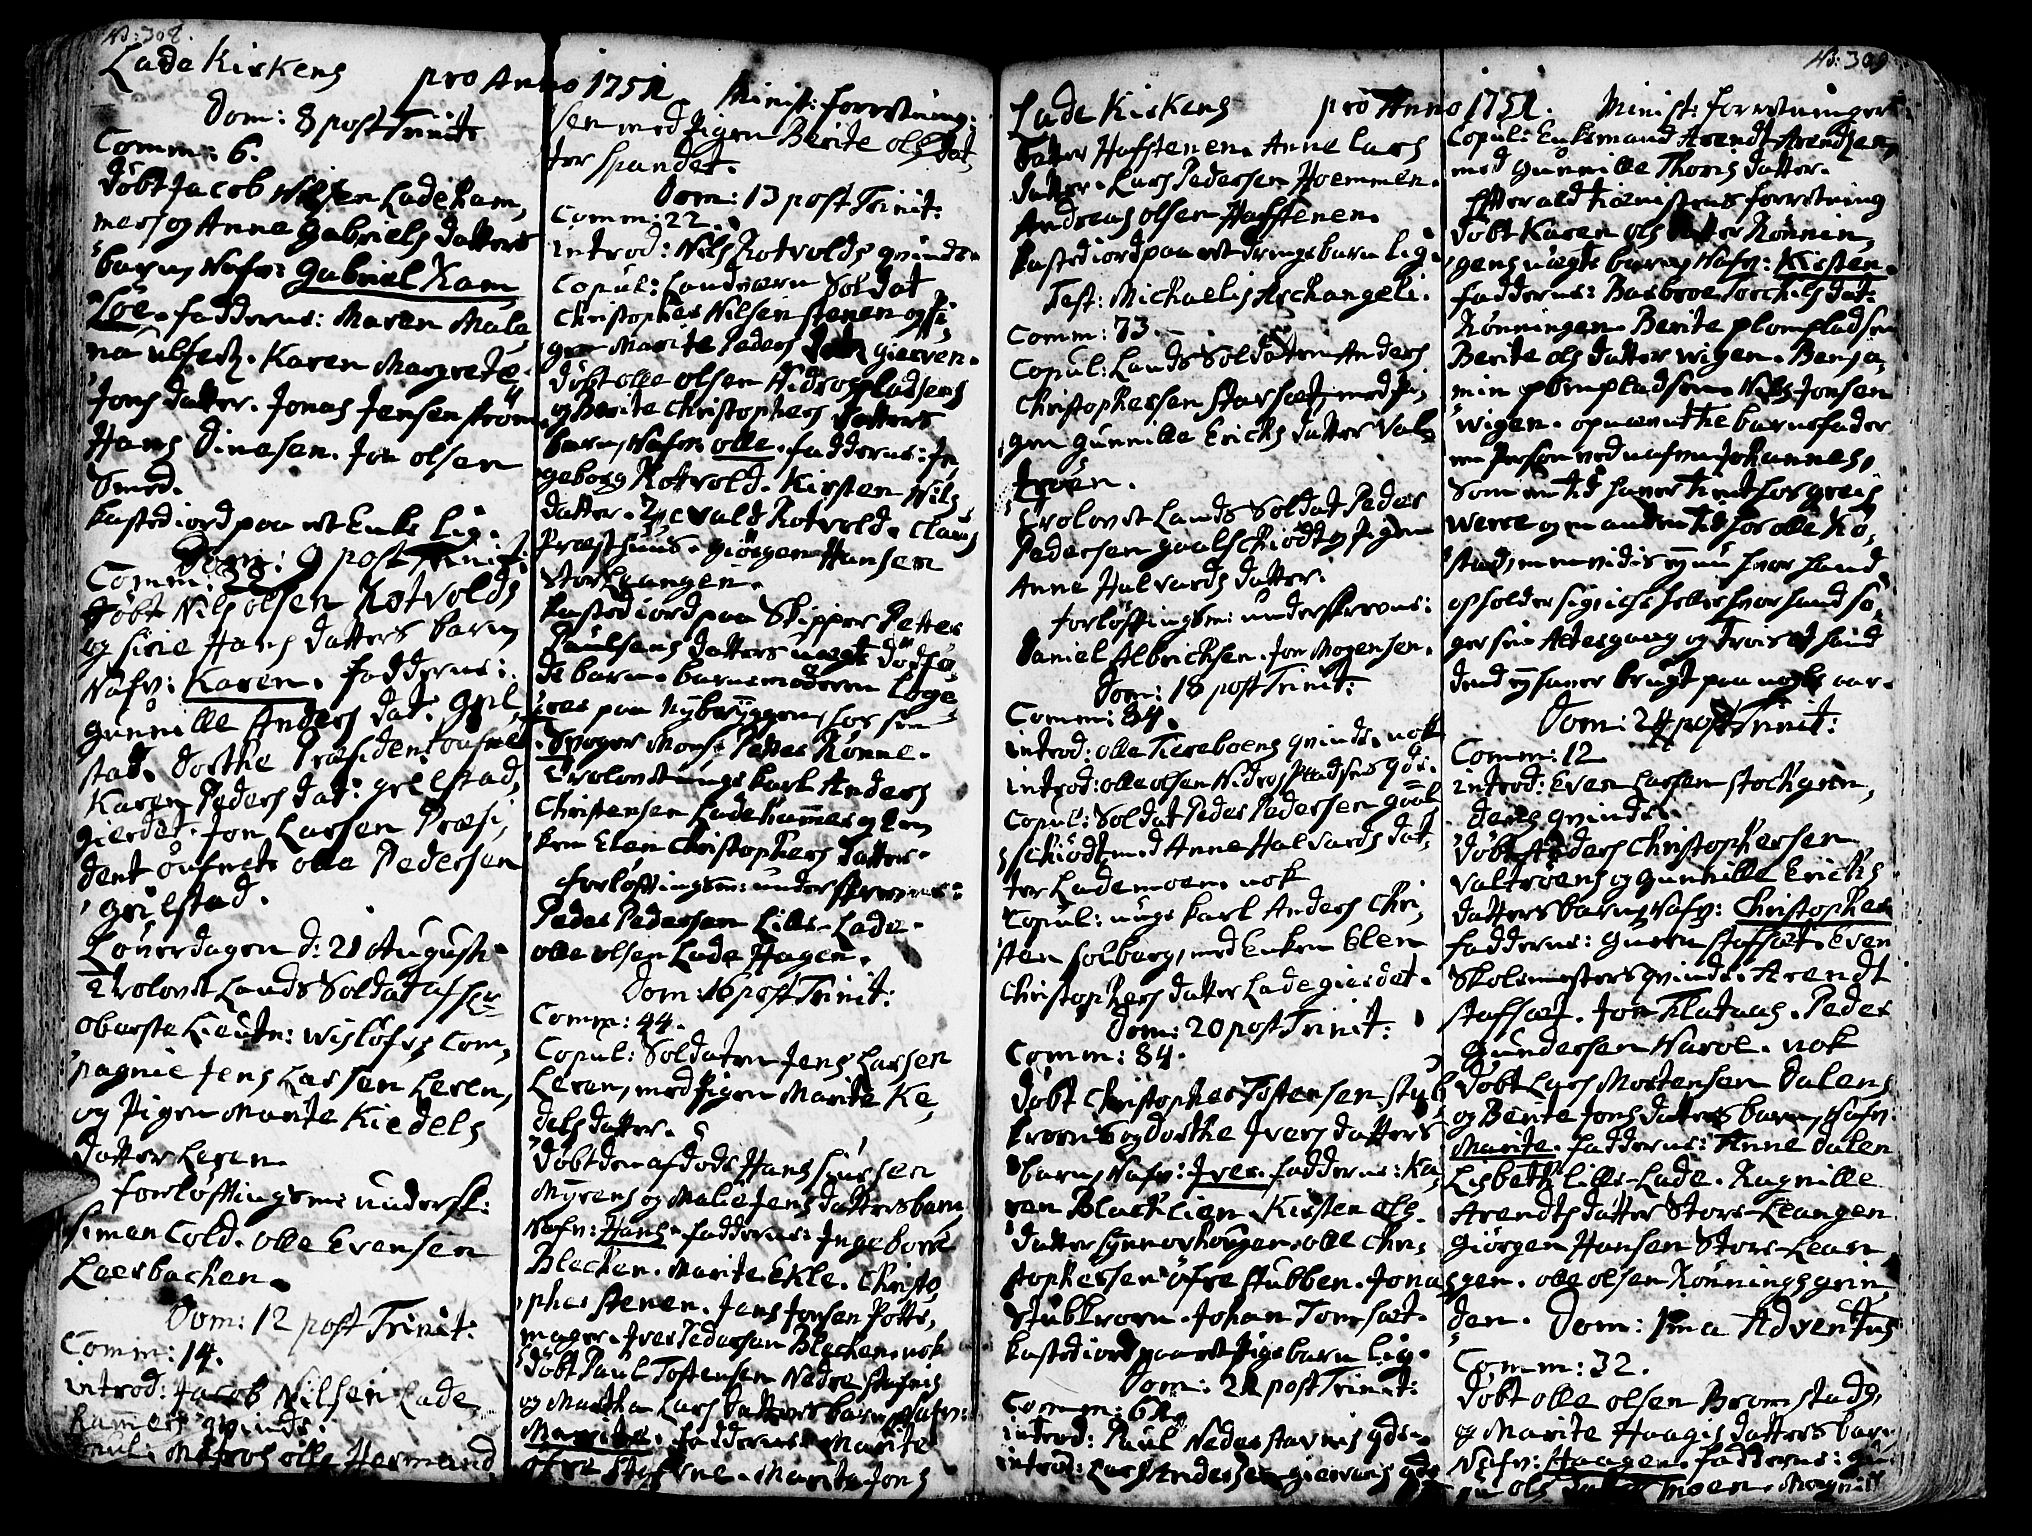 No: 308.
Lade Kirkens pro Anno 1751 Minist: forretning:
Dom: 8 post Trinit:
Comm: 6.
døbt Jacob Nilsen Ladeham,
mers og Anne Gabriels datters
barn, Nafn: Gabriel Kam
Loe. fadderne:
Jons datter. Jonas Jensen
Hans Dinesen. Jon olsen
Smed.
kasted iord paa et Enke Lig.
Dom: 9 post Trinit:
Comm: 38.
døbt Nils olsen Rotvolds
og Sirie Hans datters barn
Nafn: Karen. fadderne:
Gunnille Anders dat: Gril,
stad. Dorthe Præsident
Karen Peders dat: grilstad,
gierdet. Jon Larsen Præsi,
dent olle Pedersen
grilstad.
Løuerdagen d: 21 Augusti
Trolovet Lands Soldat af Hr
oberste Lieutn: Wisløfs Com,
pagnie Jens Larsen Leren,
og Pigen Marite Kiedels
datter Leren.
forløftningsm: undersk:
Simen Cold. olle Evensen
Laerbachen.
Dom: 12 post Trinit:
Comm: 14.
introd: Jacob Nilsen Lade
hamers qvinde.
Copul: Matros olle Hermand
sen med Pigen Berite ols dat,
ter
Dom: 13 post Trinit:
Comm: 22.
introd: Nils Rotvolds qvinde.
Copul: Landværn Soldat
Christopher Nilsen Stenen og Pi,
gen Marite Peders dat: gierven.
døbt olle olsen Nidrospladsens
og Berite Christophers datters
barn, Nafn: olle. fadderne: In,
geborg Rotvold. Kirsten Nils
datter. Rotvold. Claus
Præsthuus. Giørgen Hansen
Storleangen.
kasted iord paa Skipper Petter
Paulsens datters uægte dødfø,
de barn. barnemoderen loge,
rer paa Nybryggen, hos sin
Svoger Mons: Petter Rønne.
Trolovet unge karl Anders
Christensen Ladehammer og En,
ken Elen Christophers datter.
forløftningsm: underskrevne:
Peder Pedersen Lille-Lade.
olle olsen Lade Hagen.
Dom: 16 post Trinit:
Comm: 44.
Copul: Soldaten Jens Larsen
Leren, med Pigen Marite Ke,
dels datter.
døbt den afdøde Hans
Myrens og Malie Jens datters barn,
Nafn: Hans. fadderne: Ingeborr
Blachen. Marite Ekle. Christo,
pher Stenen. Jens Jonsen Potte,
mager. Iver Pedersen Blachen. nok
døbt Paul Tostensen Nedre
og Martha Lars datters barn, Nafn:
Marite. fadderne: Marite
Marite Jons

No: 309
Lade Kirkens pro Anno 1751. Minist: forretninger
datter Haffstenen. Anne Lars
datter. Lars Pedersen Hoemmen.
Andreas olsen Haffstenen.
kasted iord paa et drengebarn Lig.
Fest: Michaelis Archangeli.
Comm: 73.
Copul: Lands Soldaten Anders
Christophersen Starset, med Pi,
gen Gunnille Ericks datter Val,
trøen.
Trolovet Lands Soldat Peder
Pedersen gaulschiødt og Pigen
Anne Halvards datter.
forløftningsm: underskrevne:
Daniel Albrichsen. Jon Mogensen.
Dom: 18 post Trinit:
Comm: 84.
introd: olle Tiereboens qvinde. nok
introd: olle olsen Nidrospladsens
Copul: Soldat Peder Pedersen gaul
schiødt med Anne Halvards dat,
ter Lademoen. nok
Copul: unge karl Anders Chri,
sten Solberg, med Enken Elen
Christophers datter Ladegierdet.
Dom: 20 post Trinit:
Comm: 84.
døbt Christopher Tostensen Stub
kroens og Dorthe Ivers datters
barn, Nafn: Iver. fadderne: Ka,
ren Blacklien. Kirsten ols
datter olle Chri,
stophersen øfre Stubben. Jonas
Stubkroen. Johan Tonset.
kasted iord paa et Pigebarn Lig.
Dom: 21 post Trinit:
Comm: 61.
introd: Paul Neder qde.
introd: Lars Andersen giervens qde
Copul: Enkemand Arendt Arendsen
med Gunnille Thoris datter.
Effter ald tienistens forretning
døbt Karen ols datter Rønnin,
gens uægte barn, Nafn: Kirsten.
fadderne: Barbroe Torchils dat:
Rønningen. Berite plompladsen
Berite ols datter Wigen. Benja,
min plompladsen. Nils Jonsen
Wigen. opnævnthe barnefader
en Person ved nafn Johannes,
som en tid haver tient hos greis
Werre og en anden tid hos olle Rø,
stad, men vides ey nu hvor hand
opholder sig,
ger sin Altergang og
dend ey haver brugt paa nogle aar.
Dom: 24 post Trinit:
Comm: 12
introd: Even Larsen Stochgrin,
dens qvinde.
døbt Anders Christophersen
Valtroens og Gunnille Ericks
datters barn, Nafn: Christopher
fadderne: Guren Staffset. Even
Skolemesters qvinde. Arendt
Staffset. Jon Flataas. Peder
Gundersen Narve. nok
døbt Lars Mortensen Dalens
og Berite Jons datters barn, Nafn:
Marite. fadderne: Anne Dalen
Lisbeth Lille-Lade. Ragnille
Arendts datter Stor-Leangen
Giørgen Hansen Stor-Lean,
gen. olle olsen Rønningsgrin
den. Dom: 1ma Adventus
Comm: 32.
døbt olle olsen Bromstads
og Marite Haagis datters barn
Nafn: Haagen. fadderne: